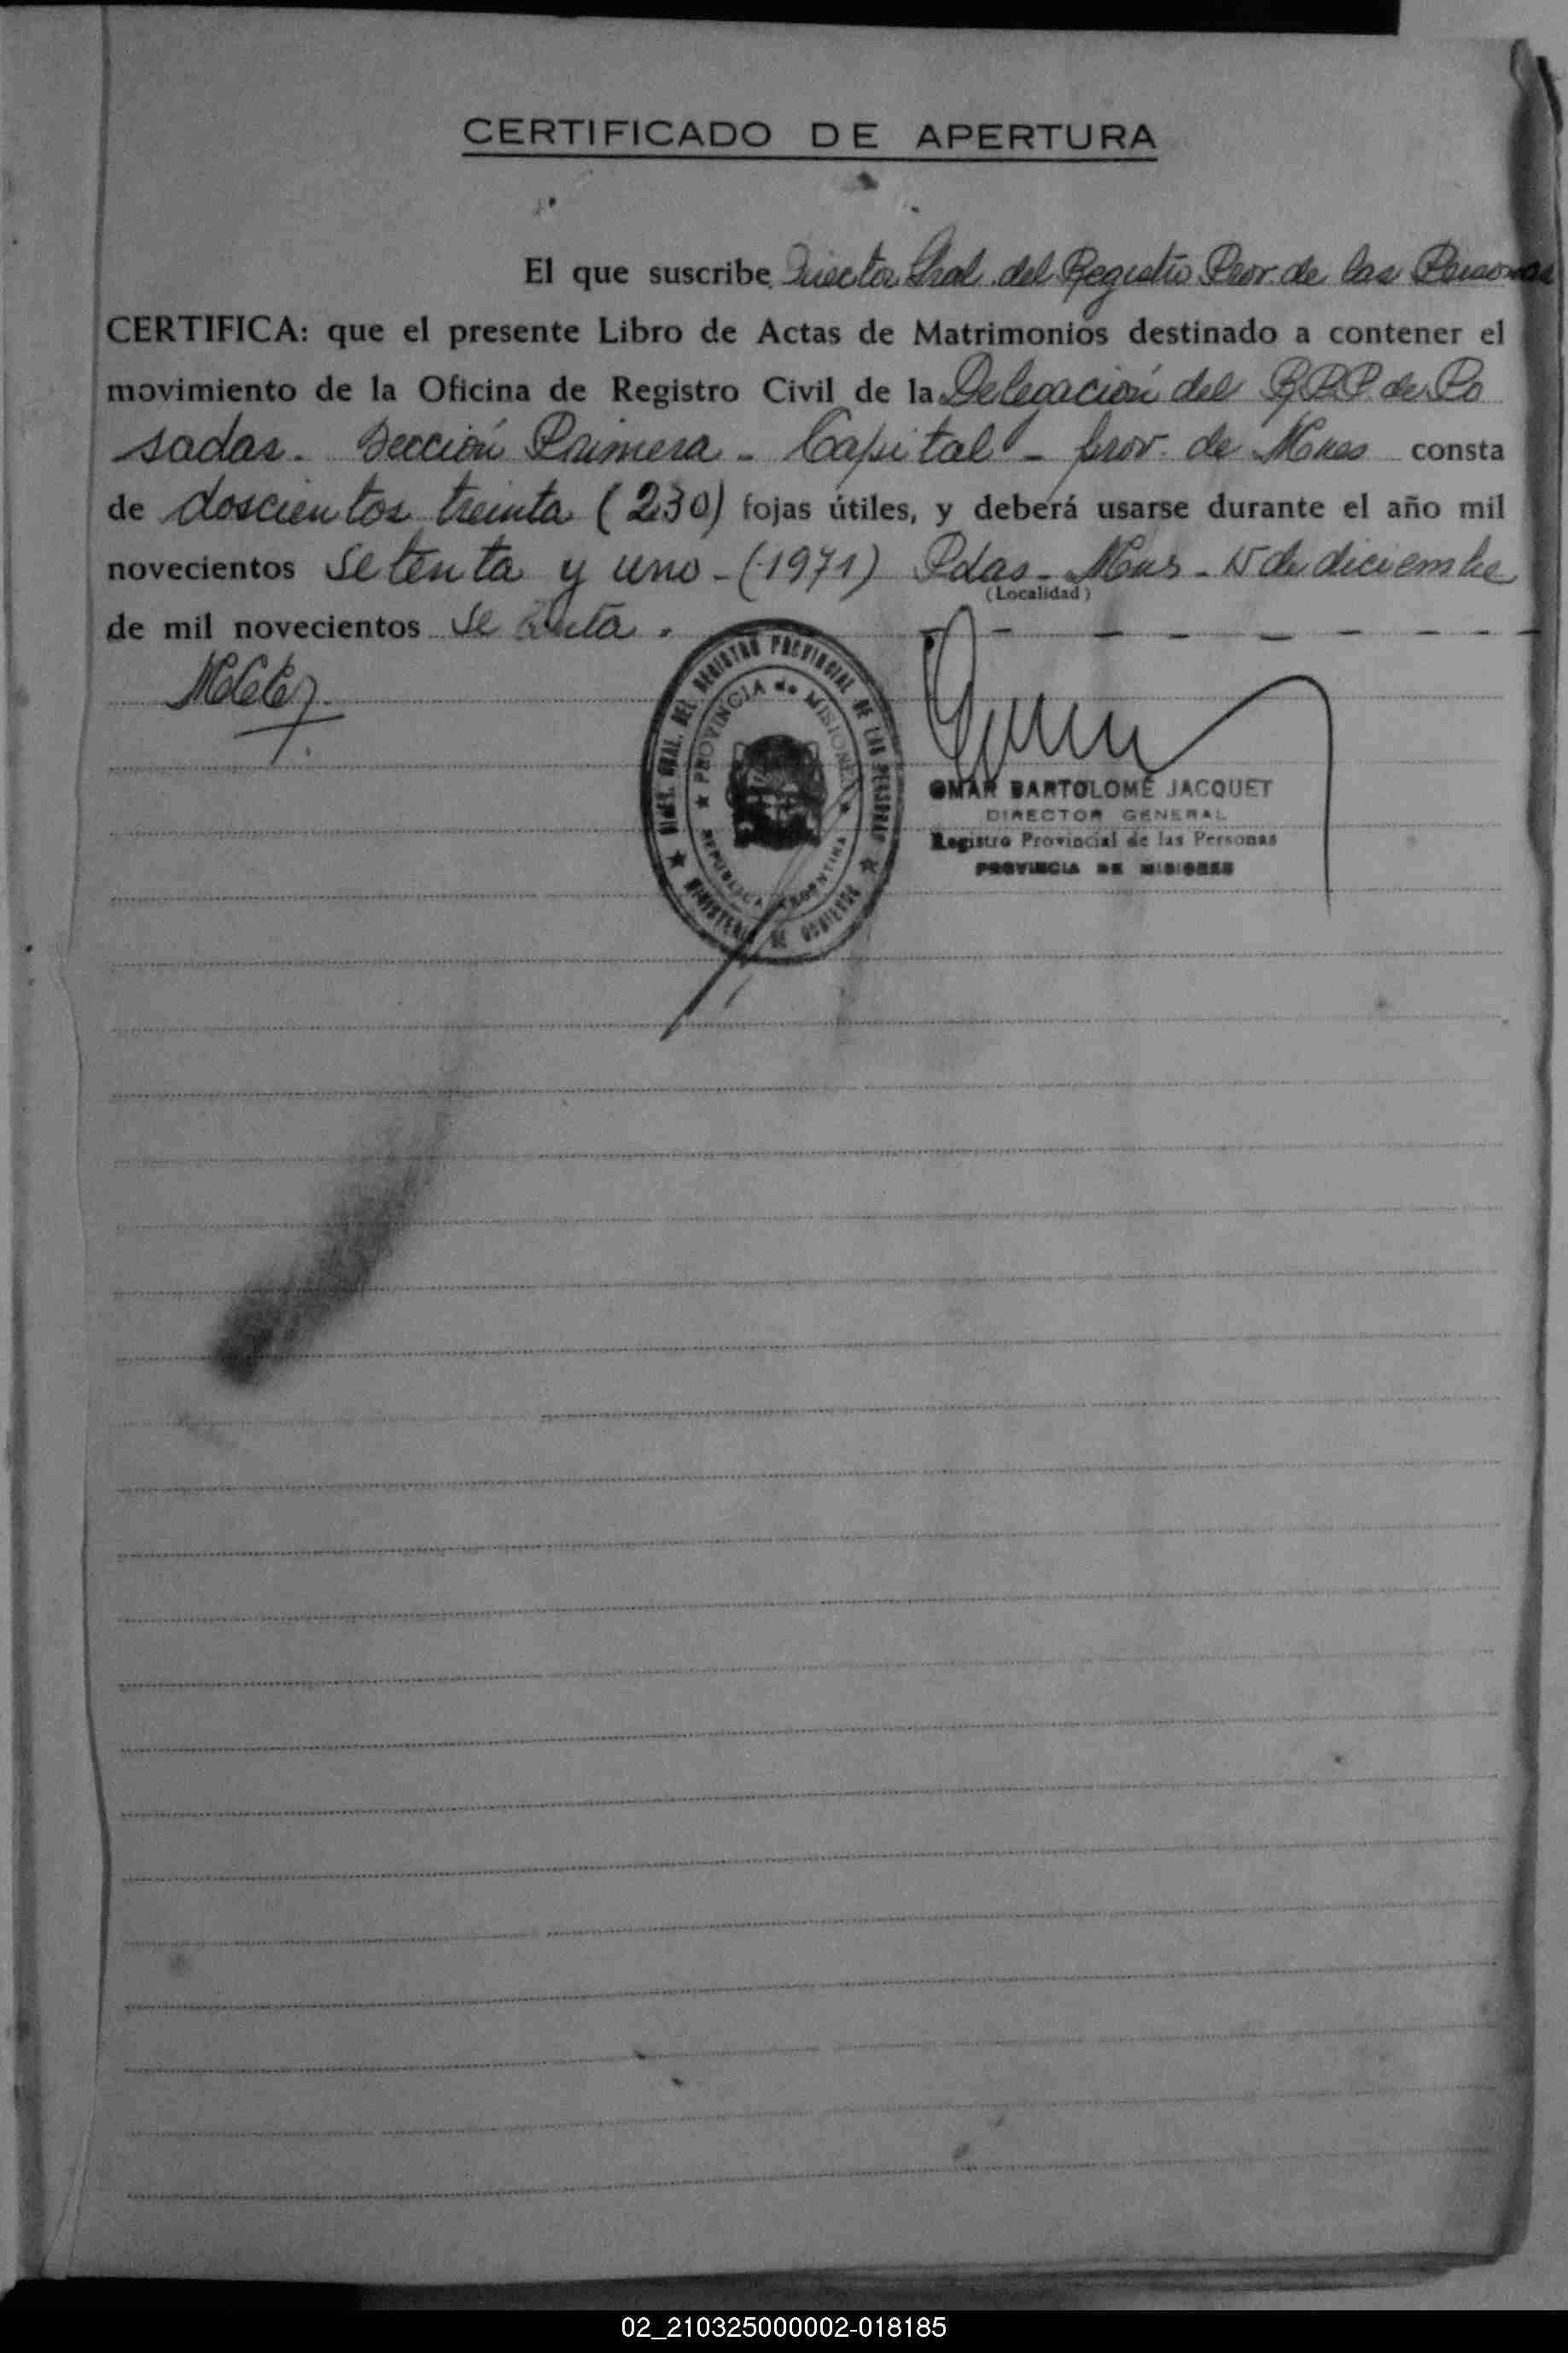 CERTIFICADO DE APERTURA
El que suscribe Director Gral. del Registro Prov. de las Personas
CERTIFICA: que el presente Libro de Actas de Matrimonios destinado a contener el
movimiento de la Oficina de Registro Civil de la Delegación del R.P.P. de Po
sadas. Sección Primera - Capital - prov. de Mnes consta
de doscientos treinta (230) fojas útiles, y deberá usarse durante el año mil
novecientos setenta y uno - (1971) Pdas - Mnes - 15 de diciembre
(Localidad)
de mil novecientos setenta.
DIREC. GRAL. DEL REGISTRO PROVINCIAL DE LAS PERSONAS
PROVINCIA de MISIONES
REPUBLICA ARGENTINA
MINISTERIO DE GOBIERNO
OMAR BARTOLOMÉ JACQUET
DIRECTOR GENERAL
Registro Provincial de las Personas
PROVINCIA DE MISIONES
02_210325000002-018185